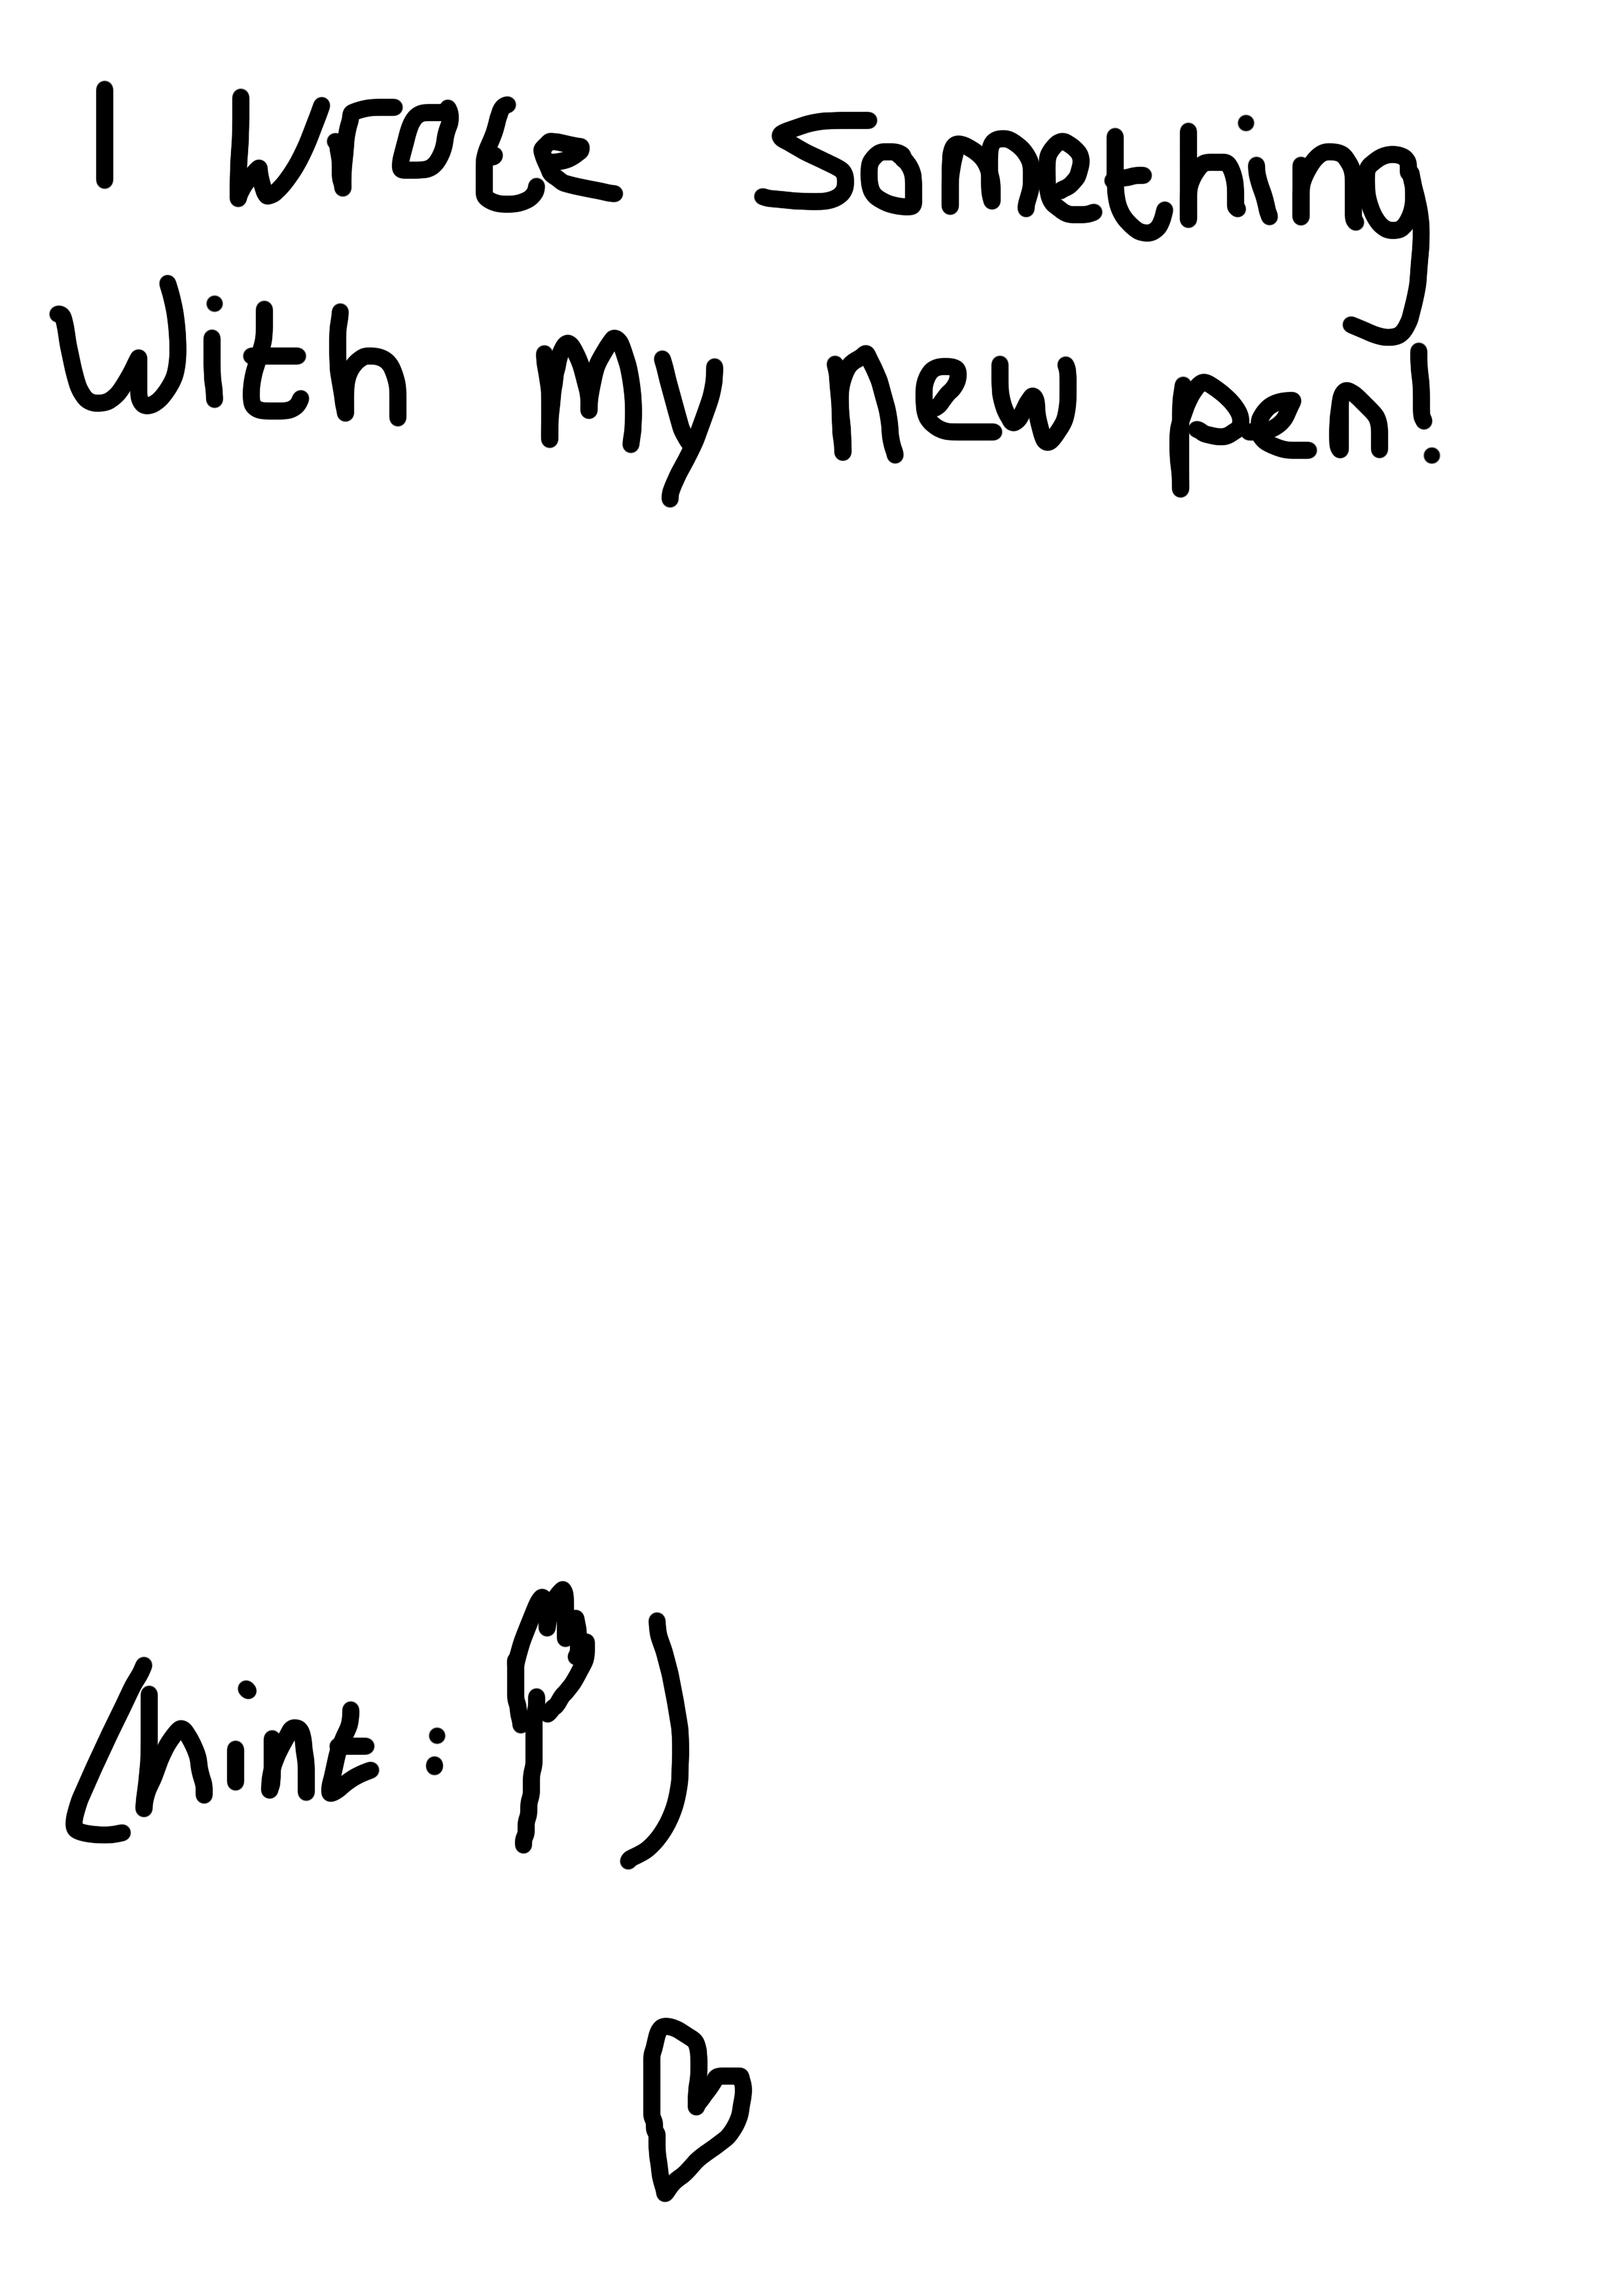 I wrote something
with my new pen!
(hint: )